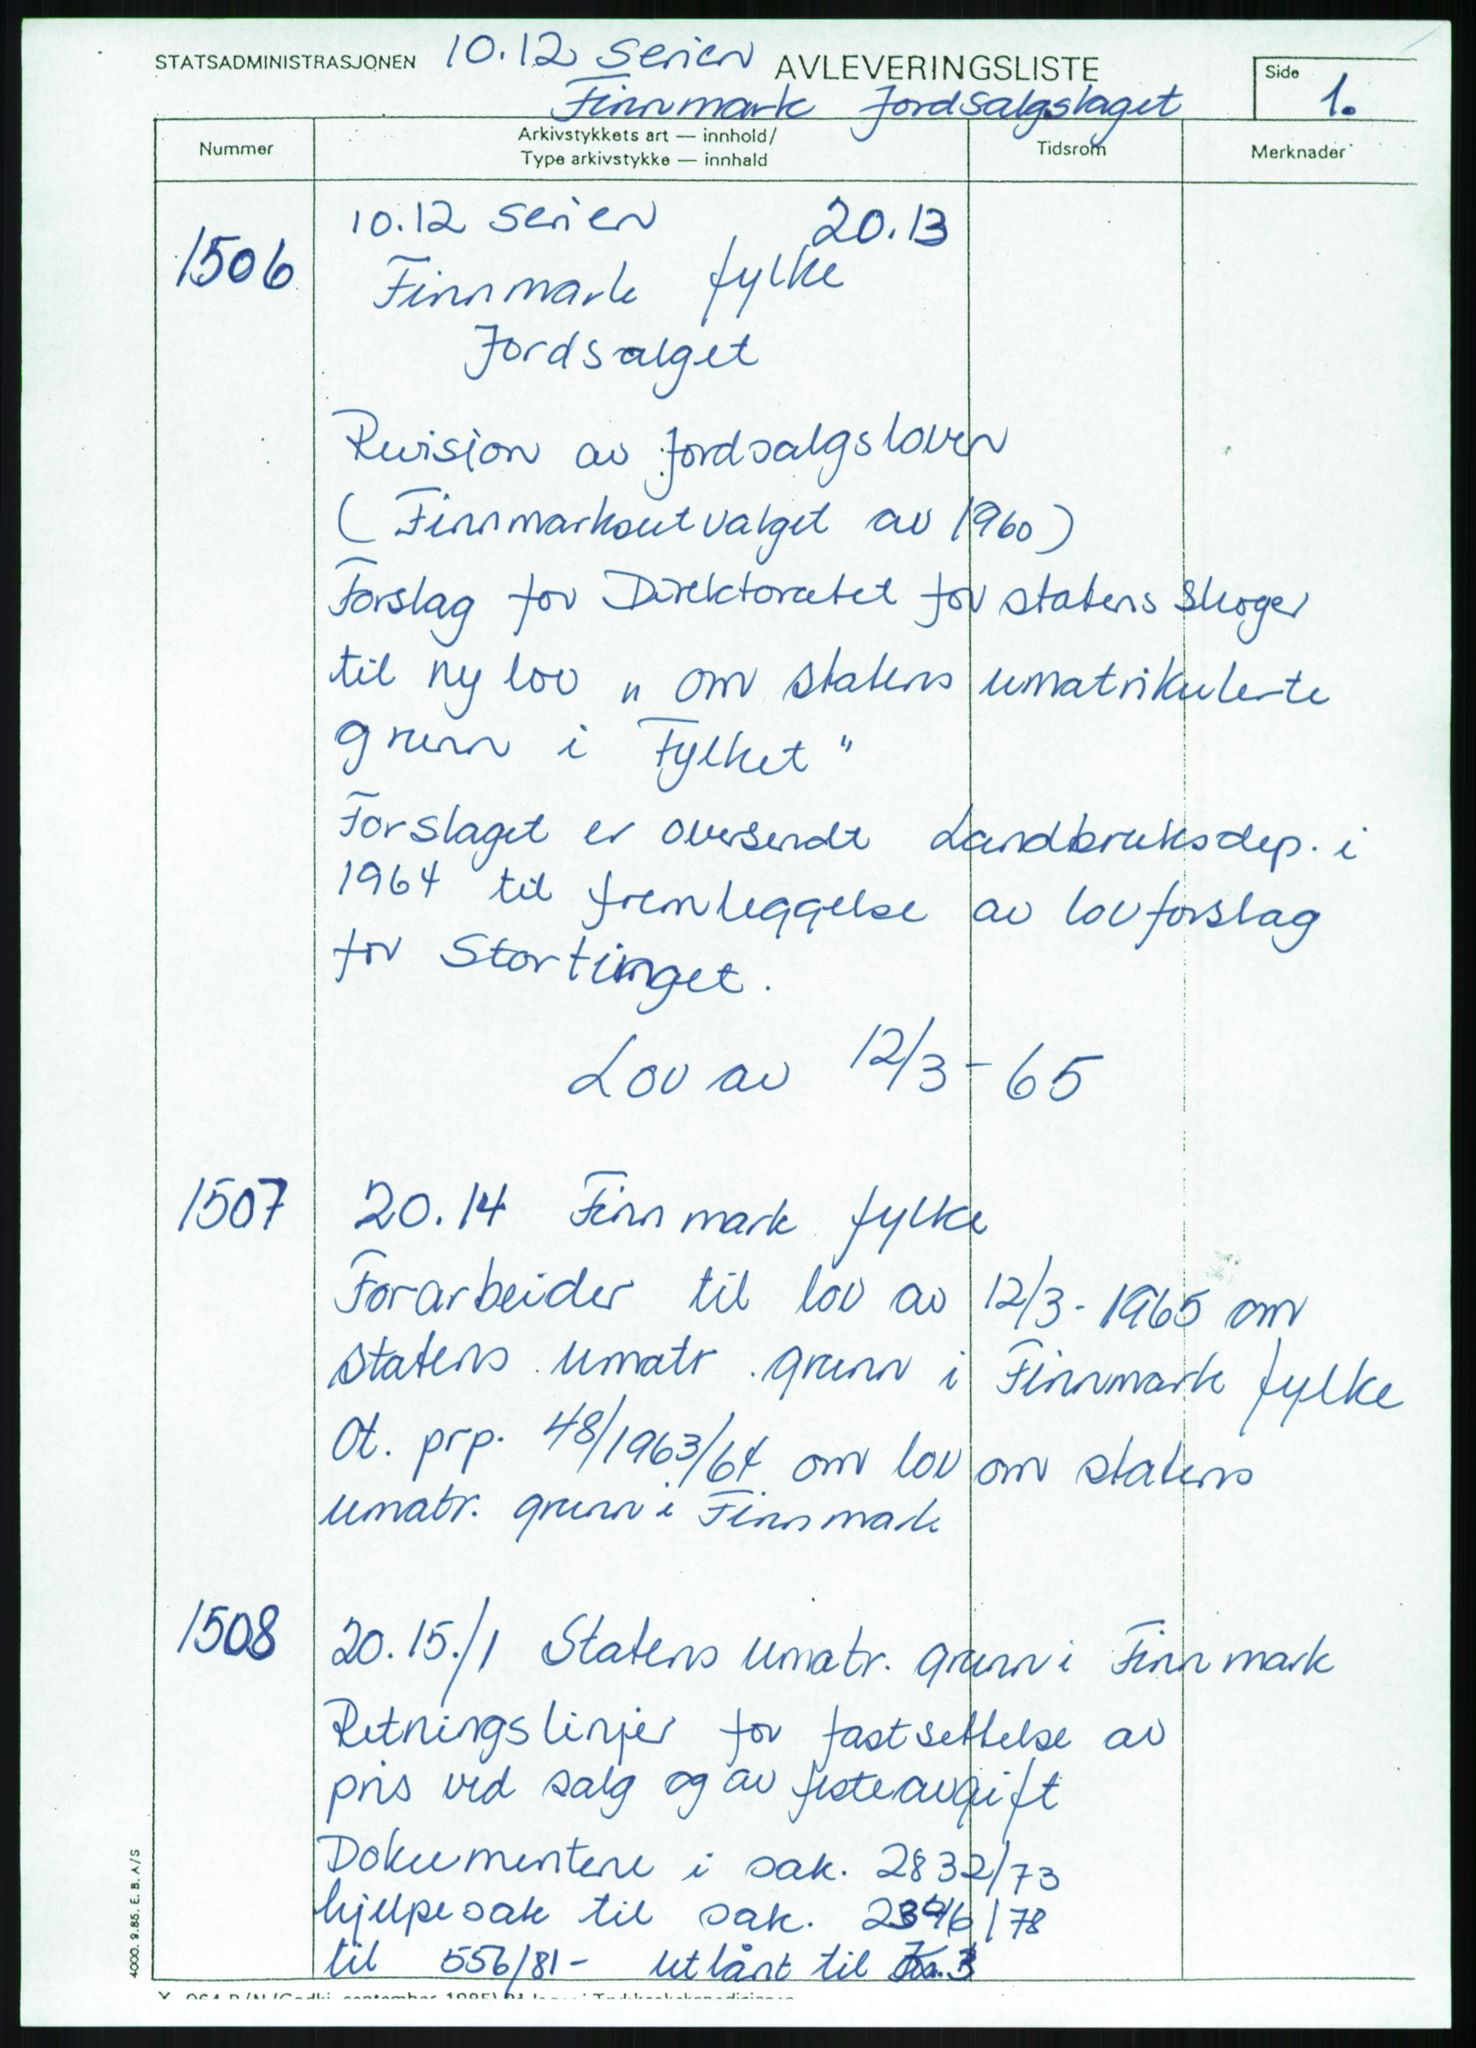 STATSADMINISTRASJONEN 10.12 serien AVLEVERINGSLISTE Side 1.
Finnmark Jordsalgslaget
Nummer Arkivstykkets art — innhold/ Tidsrom Merknader
Type arkivstykke — innhald
10.12 serien 20.13
1506 Finnmark fylke
Jordsalget
Revisjon av jordsalgsloven
(Finnmarksutvalget av 1960)
Forslag for Direktoratet for statens skoger
til ny lov " om statens umatrikulerte
grunn i Fylket "
Forslaget er oversendt Landbruksdep. i
1964 til fremleggelse av lovforslag
for Stortinget.
Lov av 12/3-65
1507 20.14 Finnmark fylke
Forarbeider til lov av 12/3-1965 om
statens umatr. grunn i Finnmark fylke
Ot. prp. 48/1963/64 om lov om statens
umatr. grunn i Finnmark
1508 20.15./1 Statens umatr. grunn i Finnmark
Retningslinjer for fastsettelse av
pris ved salg og av festeavgift
Dokumentene i sak. 2832/73
hjelpesak til sak. /78
til 556/81- utlånt til
4000. 9.85. E. B. A/S